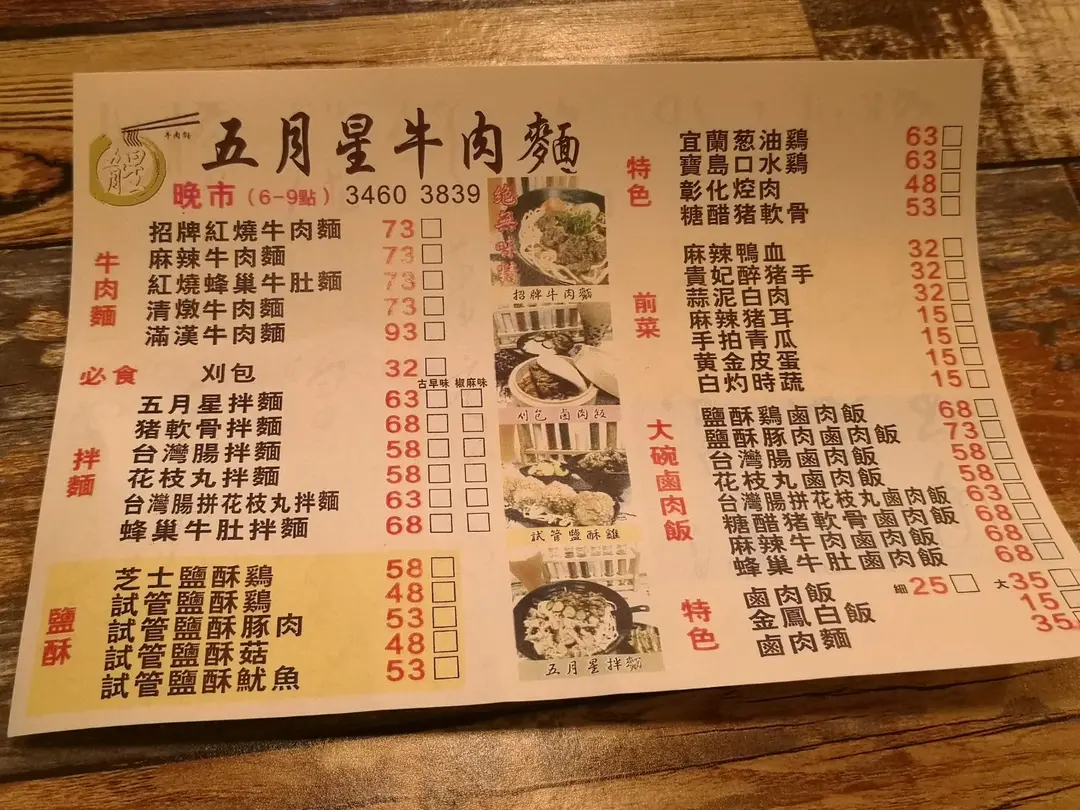 牛肉麵
五月星牛肉麵
晚市(6-9點) 3460 3839
牛肉麵
招牌紅燒牛肉麵 73
麻辣牛肉麵 73
紅燒蜂巢牛肚麵 73
清燉牛肉麵 73
滿漢牛肉麵 93
必食 刈包 32
古早味 椒麻味
拌麵
五月星拌麵 63
豬軟骨拌麵 68
台灣腸拌麵 58
花枝丸拌麵 58
台灣腸拼花枝丸拌麵 63
蜂巢牛肚拌麵 68
鹽酥
芝士鹽酥鷄 58
試管鹽酥鷄 48
試管鹽酥豚肉 53
試管鹽酥菇 48
試管鹽酥魷魚 53
絕無味精
招牌牛肉麵
刈包 鹵肉飯
試管鹽酥雞
五月星拌麵
特色
宜蘭葱油鷄 63
寶島口水鷄 63
彰化焢肉 48
糖醋豬軟骨 53
前菜
麻辣鴨血 32
貴妃醉豬手 32
蒜泥白肉 32
麻辣豬耳 15
手拍青瓜 15
黄金皮蛋 15
白灼時蔬 15
大碗鹵肉飯
鹽酥鷄鹵肉飯 68
鹽酥豚肉鹵肉飯 73
台灣腸鹵肉飯 58
花枝丸鹵肉飯 58
台灣腸拼花枝丸鹵肉飯 63
糖醋豬軟骨鹵肉飯 68
麻辣牛肉鹵肉飯 68
蜂巢牛肚鹵肉飯 68
特色
鹵肉飯 細25 大35
金鳳白飯 15
鹵肉麵 35